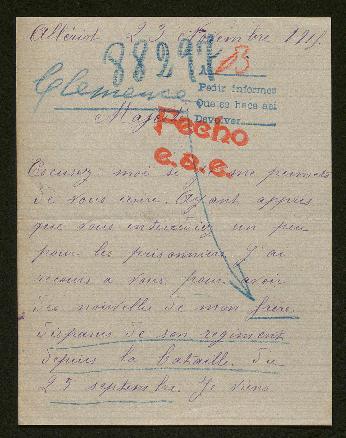 23 Novembre 191
88297 B
A
Pedir informes
Que se hace asi
Devolver
Clemence
Majesté
Fecho
e.a.e.
Excusez moi si je me permets
de vous écrire. Ayant appris
que vous intéressiez un peu
pour les prisonniers j'ai
recours a vous pour avoir
des nouvelles de mon frère
disparus de son regiment
depuis la bataille du
25 septembre. Je viens